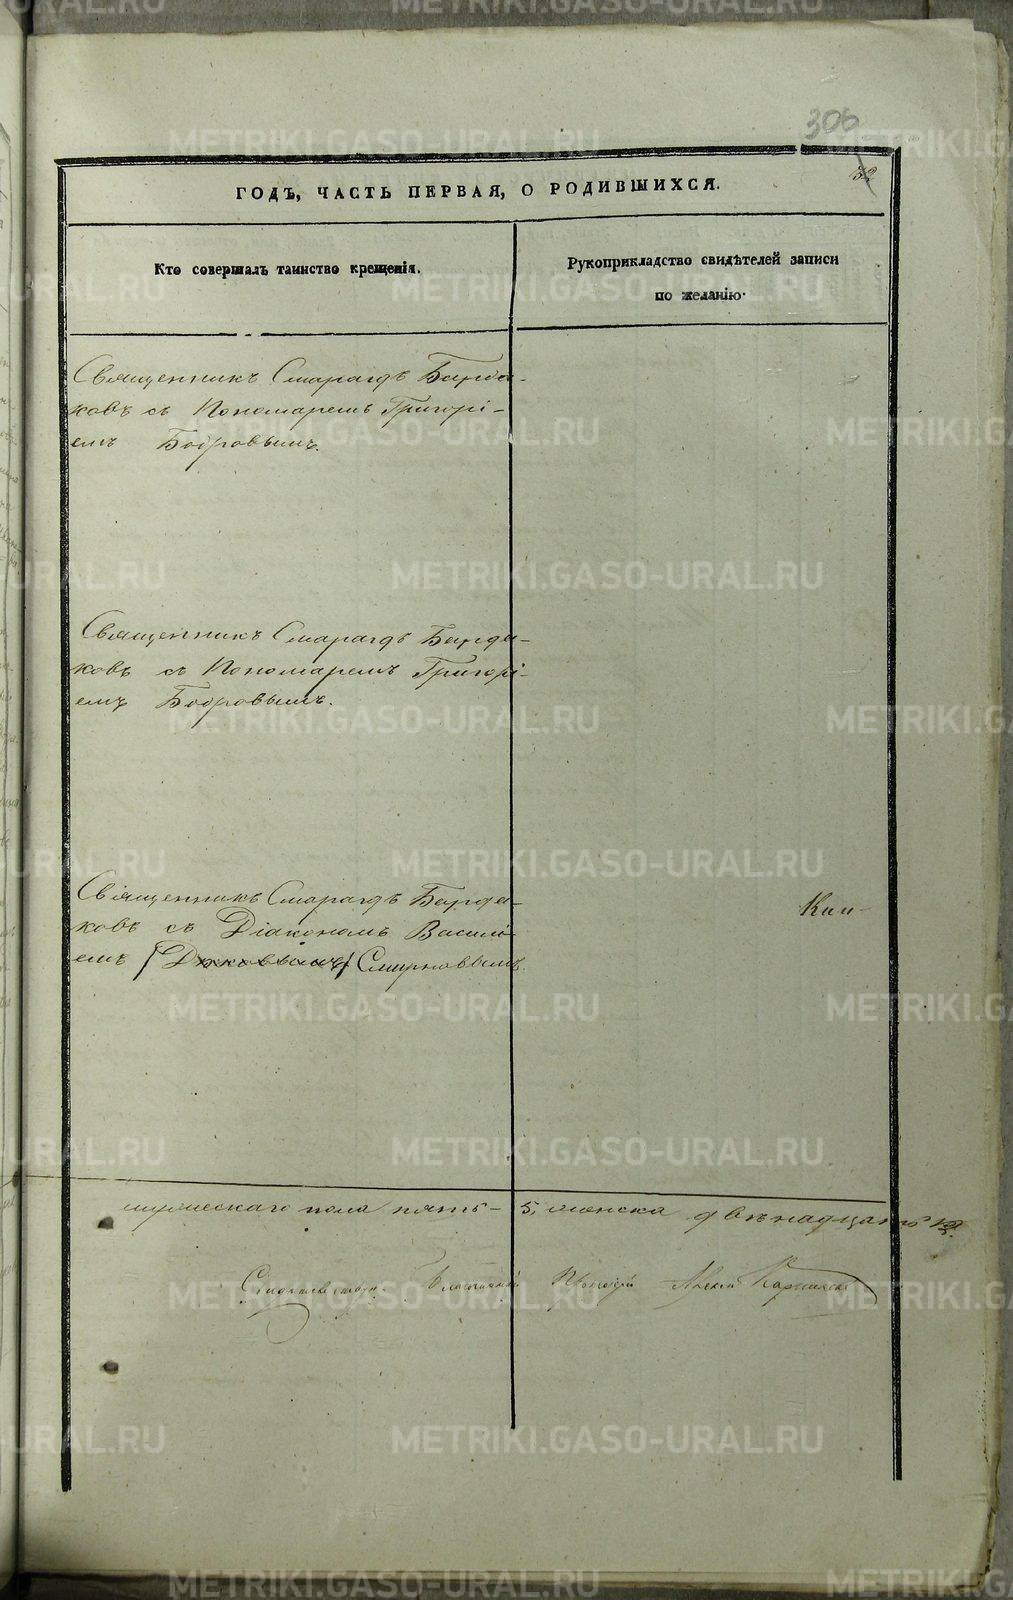 306
32
ГОДЪ, ЧАСТЬ ПЕРВАЯ, О РОДИВШИХСЯ.
Кто совершалъ таинство крещенія.
Рукоприкладство свидѣтелей записи
по желанію.
Священникъ Смарагдъ Барда-
ковъ съ Пономаремъ Григорі-
емъ Бобровымъ.
Священникъ Смарагдъ Барда-
ковъ съ Пономаремъ Григорі-
емъ Бобровымъ.
Священникъ Смарагдъ Барда-
ковъ съ Діакономъ Василі-
емъ Смирновымъ.
мужескаго пола пять - 5, женска двѣнадцать 12.
Свидѣтельствовалъ Благочинный
METRIKI.GASO-URAL.RU